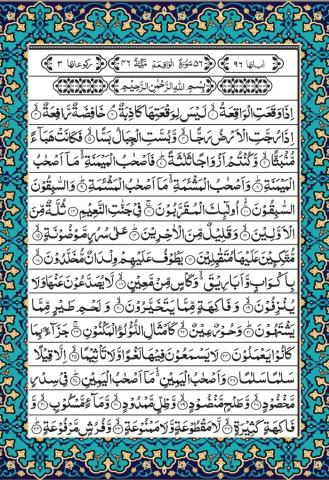 اٰیاتھا ۹۶ ۵۶ سُوْرَۃُ الْوَاقِعَةِ مَكِّيَّةٌ ۴۶ رکوعاتھا ۳
بِسْمِ اللّٰهِ الرَّحْمٰنِ الرَّحِيْمِ
اِذَا وَقَعَتِ الْوَاقِعَةُ ۙ﴿۱﴾ لَيْسَ لِوَقْعَتِهَا كَاذِبَةٌ ۘ﴿۲﴾ خَافِضَةٌ رَّافِعَةٌ ۙ﴿۳﴾
اِذَا رُجَّتِ الْاَرْضُ رَجًّا ۙ﴿۴﴾ وَّبُسَّتِ الْجِبَالُ بَسًّا ۙ﴿۵﴾ فَكَانَتْ هَبَآءً
مُّنْۢبَثًّا ۙ﴿۶﴾ وَّكُنْتُمْ اَزْوَاجًا ثَلٰثَةً ؕ﴿۷﴾ فَاَصْحٰبُ الْمَيْمَنَةِ ۙ۬ مَاۤ اَصْحٰبُ
الْمَيْمَنَةِ ؕ﴿۸﴾ وَاَصْحٰبُ الْمَشْـَٔمَةِ ۙ۬ مَاۤ اَصْحٰبُ الْمَشْـَٔمَةِ ؕ﴿۹﴾ وَالسّٰبِقُوْنَ
السّٰبِقُوْنَ ۚۙ﴿۱۰﴾ اُولٰٓئِكَ الْمُقَرَّبُوْنَ ۚ﴿۱۱﴾ فِيْ جَنّٰتِ النَّعِيْمِ ﴿۱۲﴾ ثُلَّةٌ مِّنَ
الْاَوَّلِيْنَ ۙ﴿۱۳﴾ وَقَلِيْلٌ مِّنَ الْاٰخِرِيْنَ ؕ﴿۱۴﴾ عَلٰى سُرُرٍ مَّوْضُوْنَةٍ ۙ﴿۱۵﴾
مُّتَّكِـِٕيْنَ عَلَيْهَا مُتَقٰبِلِيْنَ ﴿۱۶﴾ يَطُوْفُ عَلَيْهِمْ وِلْدَانٌ مُّخَلَّدُوْنَ ۙ﴿۱۷﴾
بِاَكْوَابٍ وَّاَبَارِيْقَ ۙ۬ وَكَاْسٍ مِّنْ مَّعِيْنٍ ۙ﴿۱۸﴾ لَّا يُصَدَّعُوْنَ عَنْهَا وَلَا
يُنْزِفُوْنَ ۙ﴿۱۹﴾ وَفَاكِهَةٍ مِّمَّا يَتَخَيَّرُوْنَ ۙ﴿۲۰﴾ وَلَحْمِ طَيْرٍ مِّمَّا
يَشْتَهُوْنَ ؕ﴿۲۱﴾ وَحُوْرٌ عِيْنٌ ۙ﴿۲۲﴾ كَاَمْثَالِ اللُّؤْلُؤِ الْمَكْنُوْنِ ۚ﴿۲۳﴾ جَزَآءًۢ بِمَا
كَانُوْا يَعْمَلُوْنَ ﴿۲۴﴾ لَا يَسْمَعُوْنَ فِيْهَا لَغْوًا وَّلَا تَاْثِيْمًا ۙ﴿۲۵﴾ اِلَّا قِيْلًا
سَلٰمًا سَلٰمًا ﴿۲۶﴾ وَاَصْحٰبُ الْيَمِيْنِ ۙ۬ مَاۤ اَصْحٰبُ الْيَمِيْنِ ؕ﴿۲۷﴾ فِيْ سِدْرٍ
مَّخْضُوْدٍ ۙ﴿۲۸﴾ وَّطَلْحٍ مَّنْضُوْدٍ ۙ﴿۲۹﴾ وَّظِلٍّ مَّمْدُوْدٍ ۙ﴿۳۰﴾ وَّمَآءٍ مَّسْكُوْبٍ ۙ﴿۳۱﴾
وَّفَاكِهَةٍ كَثِيْرَةٍ ۙ﴿۳۲﴾ لَّا مَقْطُوْعَةٍ وَّلَا مَمْنُوْعَةٍ ۙ﴿۳۳﴾ وَّفُرُشٍ مَّرْفُوْعَةٍ ؕ﴿۳۴﴾